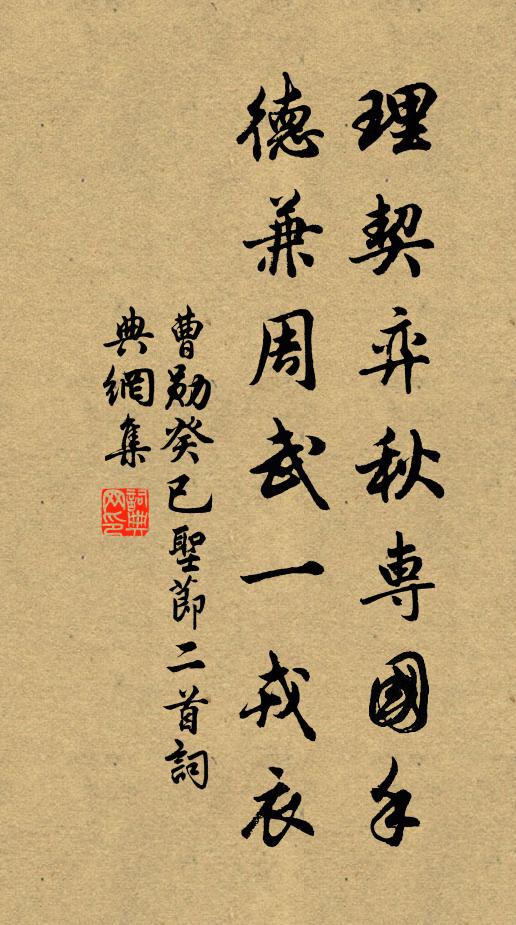 理契弈秋専國手
德兼周武一戎衣
曹勛癸巳聖節二首詞
典網集
詞典網印